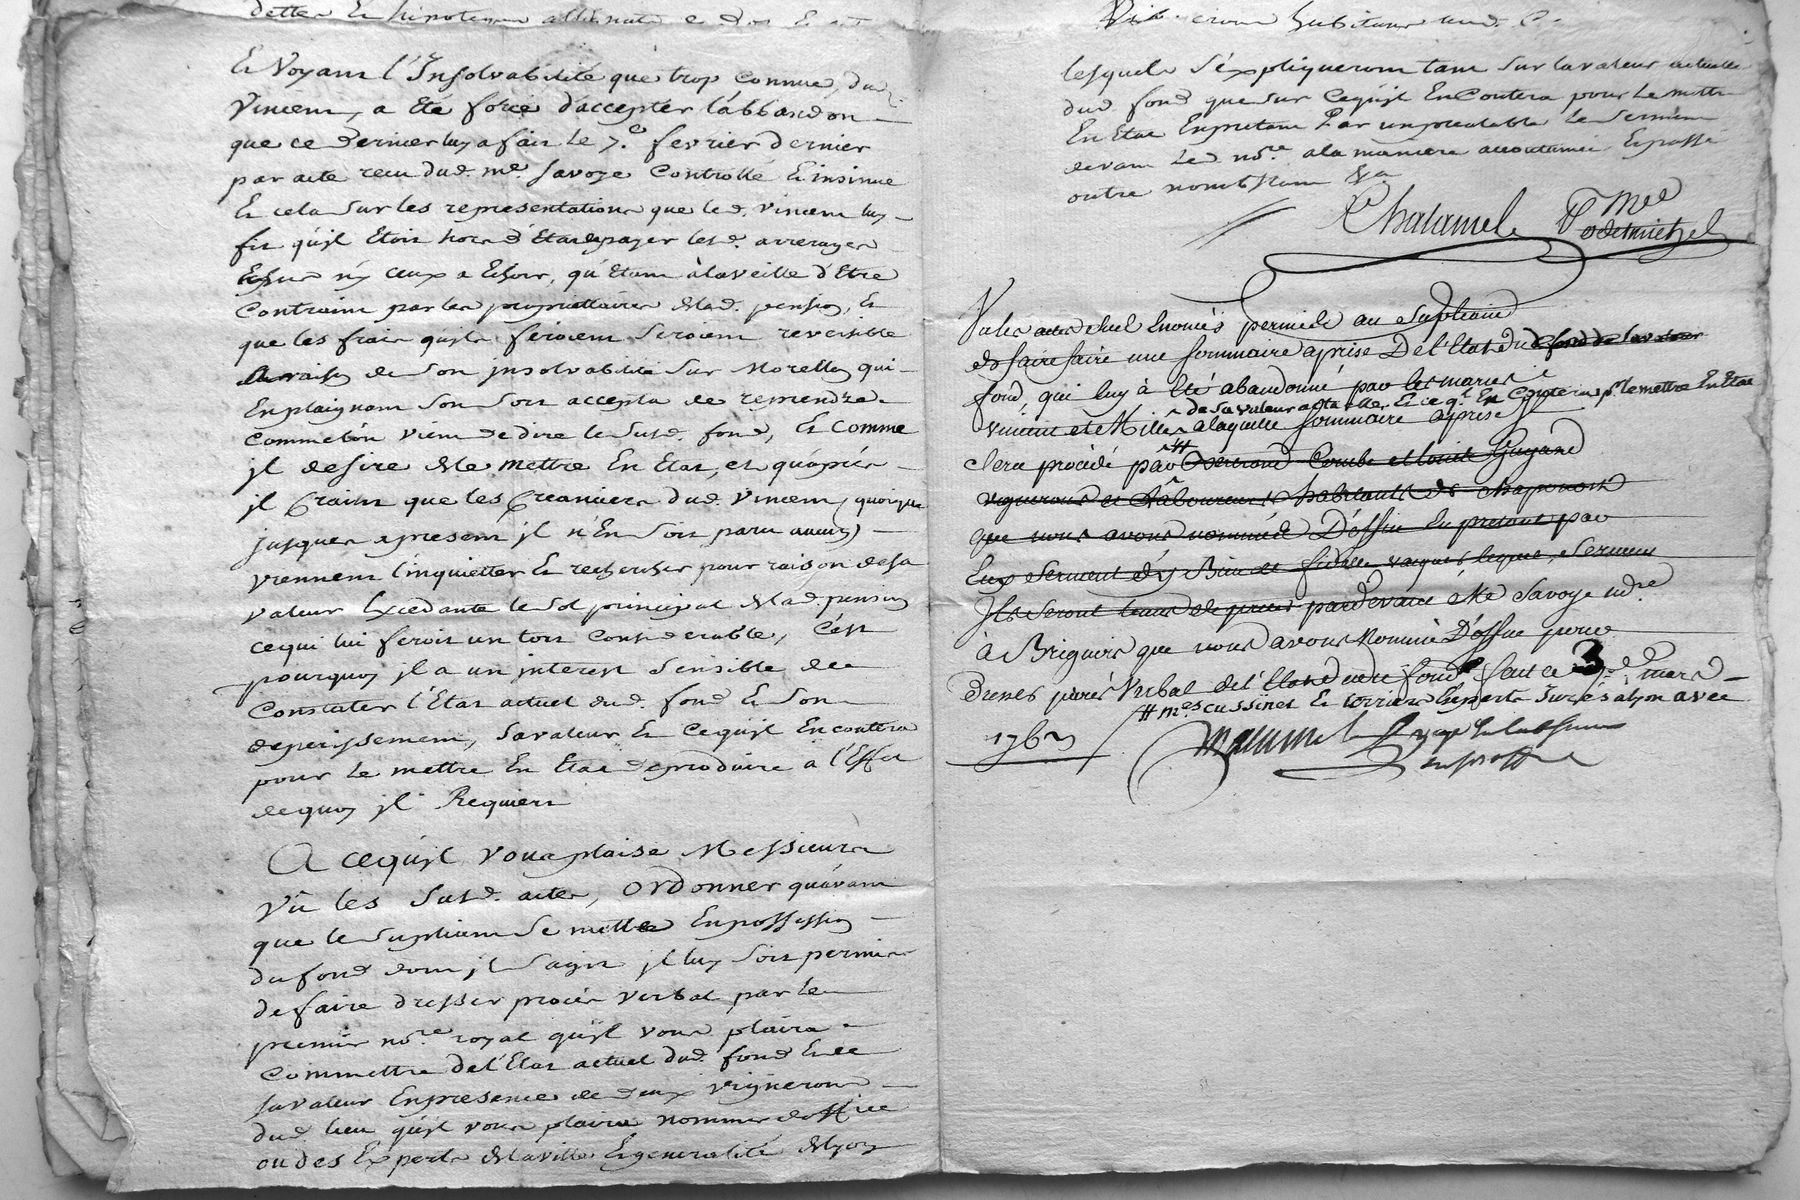 dettes & hipoteques
Et Voyant l'Insolvabilité que trop connue, dud.
Vincent, a été forcé d'accepter l'abbandon
que ce dernier luy a fait le 7.e fevrier dernier
par acte recu dud. me Savoye Controllé & insinué
Et cela sur les representations que led. Vincent luy
fit qu'jl étoit hors d'état de payer lesd. arrerages
Echus n'y ceux a Echoir, qu'étant à la veille d'être
Contraint par les proprietaires de lad. pension, &
que les frais qu'ils feroient seroient reversible
de son jnsolvabilité sur Morellon qui
En plaignant son sort accepta de reprendre
comme l'on vient de dire le susd. fond, Et comme
jl desire de le mettre En Etat, et qu'après
jl Craint que les Creanciers dud. Vincent, quoique
jusques apresent jl n'En soit paru aucun)
viennent l'inquietter & rechercher pour raison de sa
valeur Excedante le sol principal de lad. pension
ce qui lui feroit un tort considerable, c'est
pourquoy jl a un jnterest sensible de
Constater l'Etat actuel dud. fond & son
deperissement, sa valeur & ce qu'jl En coutera
pour le mettre En Etat de produire a l'Effet
de quoy jl Requiert
A ce qu'jl vous plaise Messieurs
Vû les susd. actes, ordonner qu'avant
que le supliant se mette En possession
du fond dont jl s'agit jl luy soit permis
de faire dresser procès verbal par le
premier no.re royal qu'jl vous plaira
Commettre de l'Etat actuel dud. fond & de
sa valeur En presence de deux vignerons
dud. lieu qu'jl vous plaira nommer d'office
ou des Experts de la ville & generalité de Lyon
habitans aud.
lesquels s'expliqueront tant sur la valeur actuelle
dud. fond que sur ce qu'jl En Coutera pour le mettre
En Etat En pretant Par un prealable le serment
devant led. no.re a la maniere accoutumée Et passé
outre nonobstant &a
Chalamel
Vu les actes permis au supliant
de faire faire une sommaire aprise De l'Etat du fond de la valeur
fond, qui luy à été abandonné par les mariés
de sa valeur actuelle, & ce q.l En Coutera p.r le mettre En Etat
Vincent et Millet a laquelle sommaire aprise jl
sera procédé par Combe et Guyard
vignerons et laboureurs habitants de Chaponost
que nous avons nommés D'office En pretant par
Eux serment de Bien et fidelle serment
Ils seront tenus de preter pardevant Me Savoye no.re
à Brignais que nous avons Nommé D'office pour
Dresser procés Verbal de l'Etat dudit fond, fait ce 3 mars
m.es cussinet & torrier Experts Jurés a lyon avec